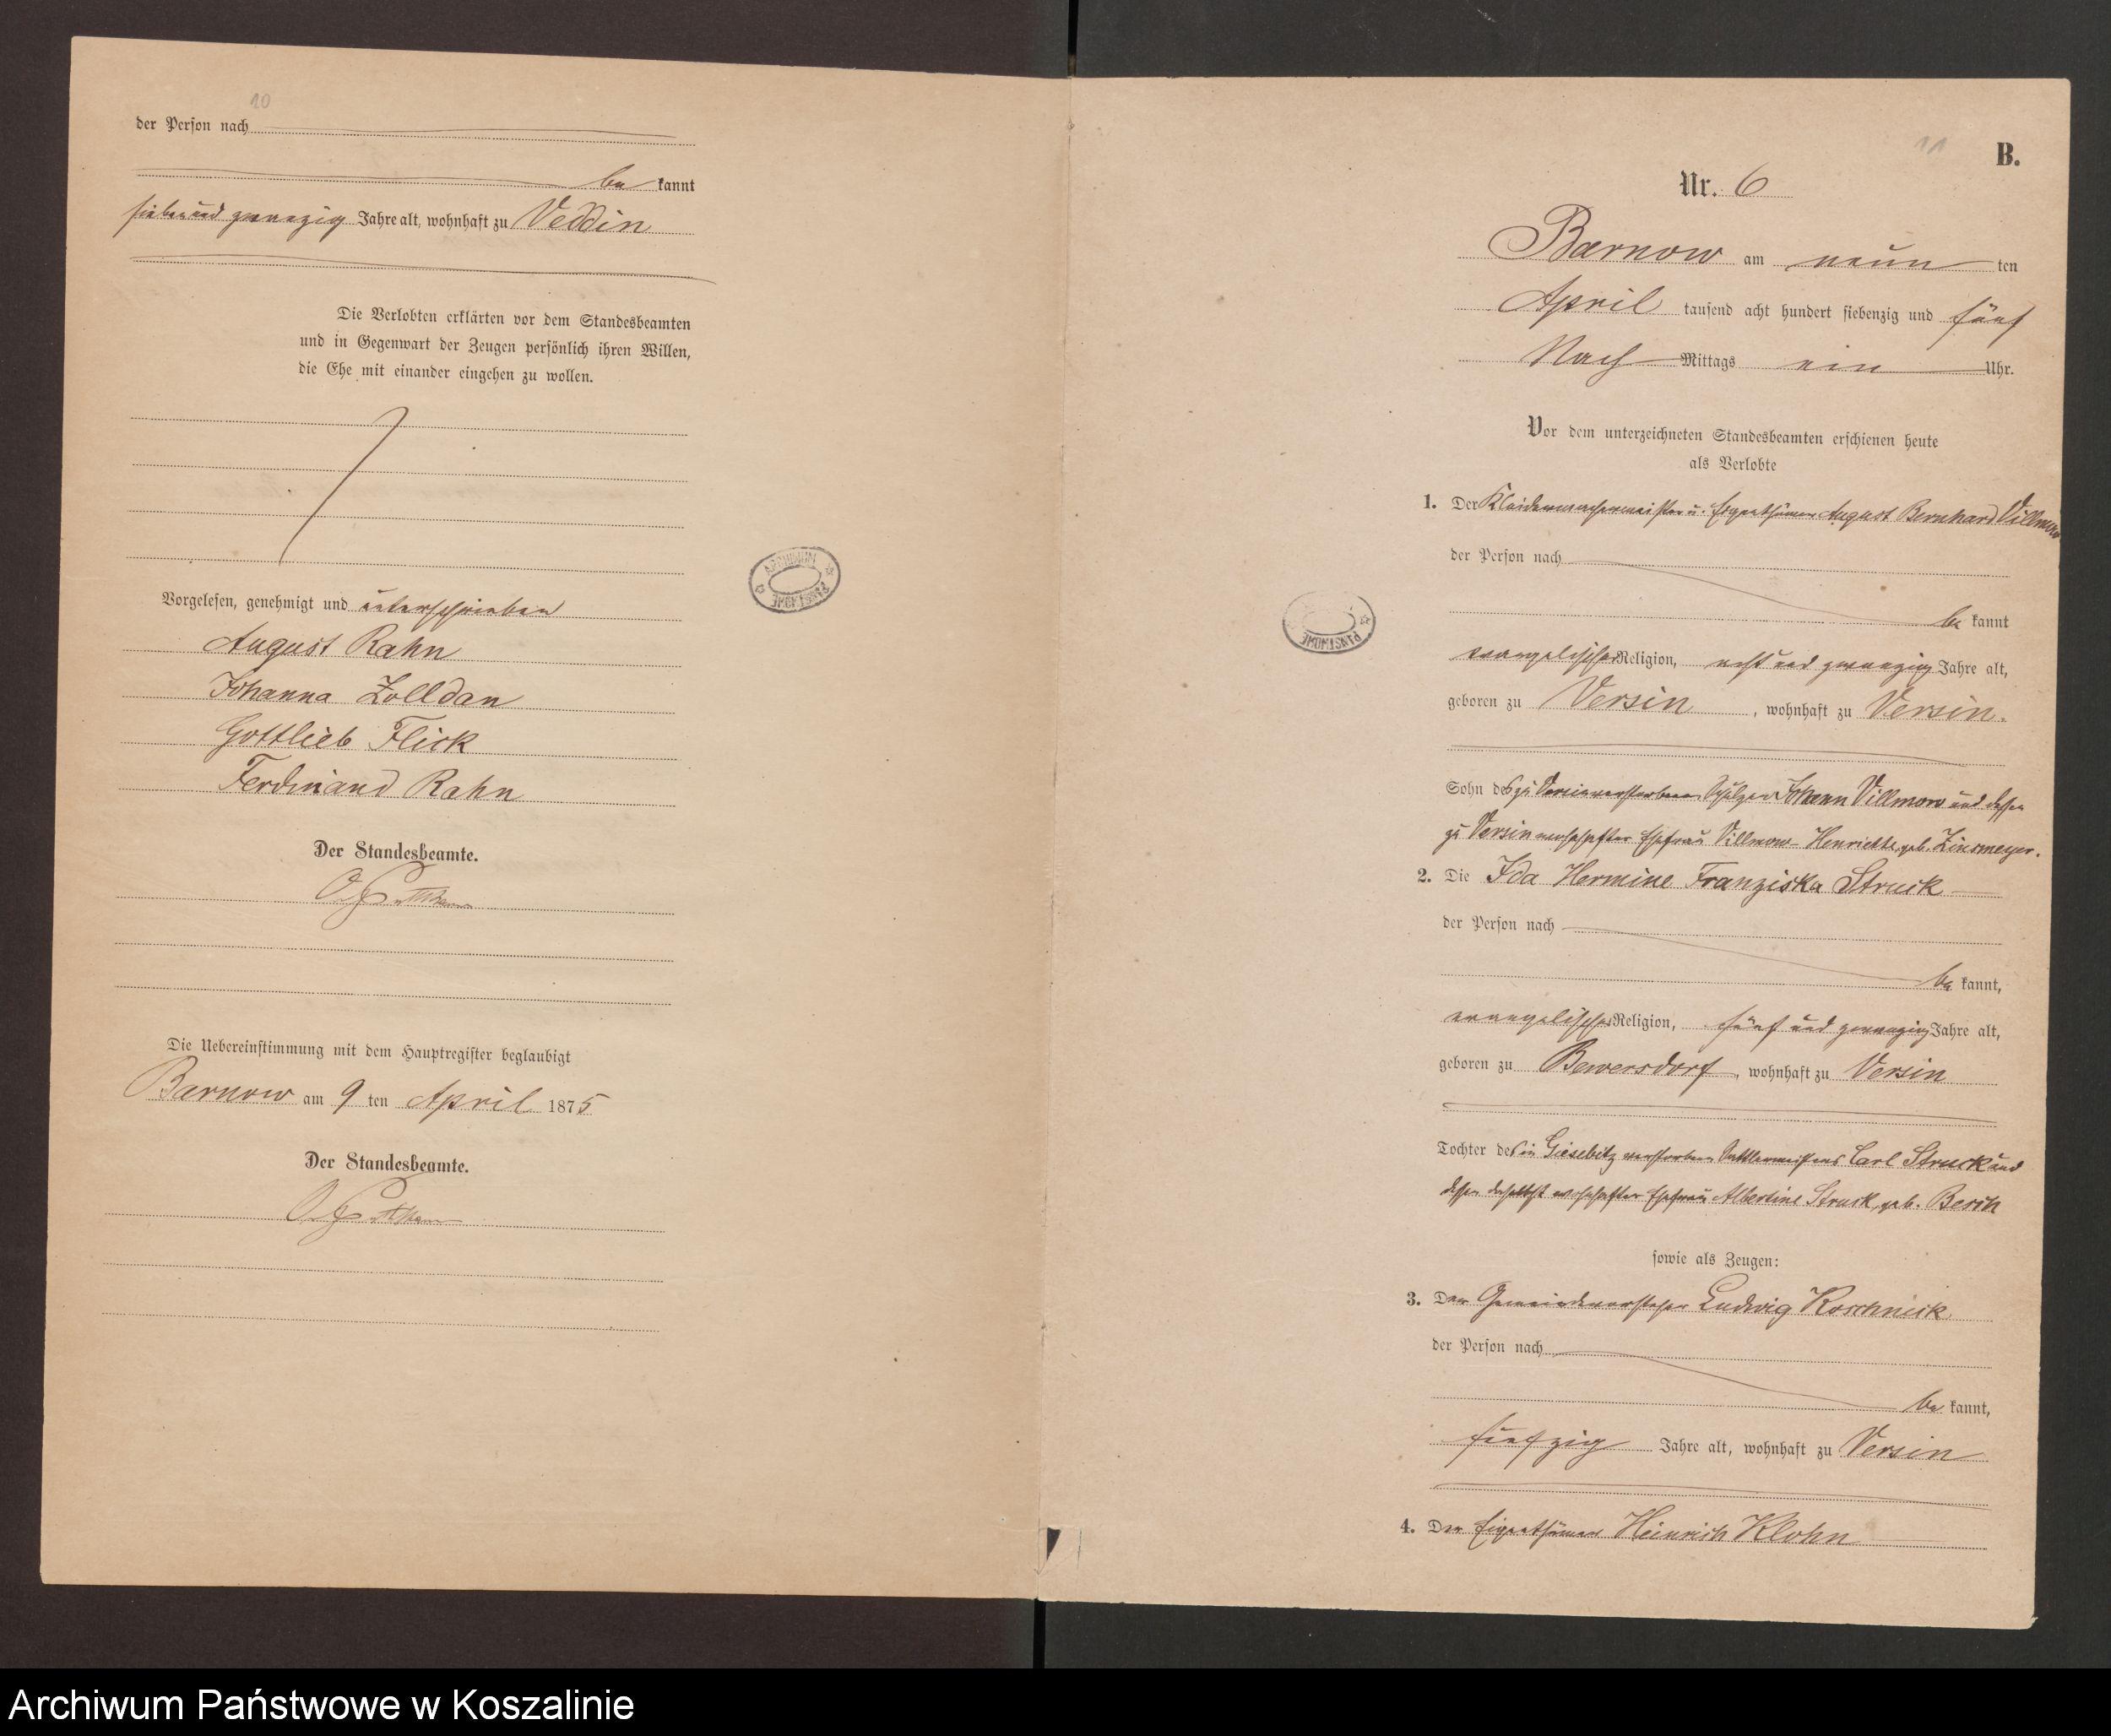 10
der Person nach
be kannt
sieben und zwanzig Jahre alt, wohnhaft zu Veddin
Die Verlobten erklärten vor dem Standesbeamten
und in Gegenwart der Zeugen persönlich ihren Willen,
die Ehe mit einander eingehen zu wollen.
Vorgelesen, genehmigt und unterschrieben
August Rahn
Johanna Zolldan
Gottlieb Flick
Ferdinand Rahn
Der Standesbeamte.
Die Uebereinstimmung mit dem Hauptregister beglaubigt
Barnow am 9 ten April 1875
Der Standesbeamte.
ARCHIWUM PAŃSTWOWE
11
B.
Nr. 6
Barnow am neun ten
April tausend acht hundert siebenzig und fünf
Nach Mittags ein Uhr.
Vor dem unterzeichneten Standesbeamten erschienen heute
als Verlobte
1. Der Kleidermachermeister u. Eigenthümer August Bernhard Villmow
der Person nach
be kannt
evangelischer Religion, acht und zwanzig Jahre alt,
geboren zu Versin, wohnhaft zu Versin.
PAŃSTWOWE
Sohn des zu Versin verstorbenen Schulzen Johann Villmow und dessen
zu Versin wohnhaften Ehefrau Villmow Henriette geb. Zinsmeyer.
2. Die Ida Hermine Franziska Struck
der Person nach
be kannt,
evangelischer Religion, fünf und zwanzig Jahre alt,
geboren zu Bewersdorf, wohnhaft zu Versin
Tochter des in Giesebitz verstorbenen Sattlermeisters Carl Struck und
dessen daselbst wohnhaften Ehefrau Albertine Struck, geb.
sowie als Zeugen:
3. Der Gemeindevorsteher Ludwig Koschnick
der Person nach
be kannt,
fünfzig Jahre alt, wohnhaft zu Versin
4. Der Eigenthümer Heinrich Klohn
Archiwum Państwowe w Koszalinie